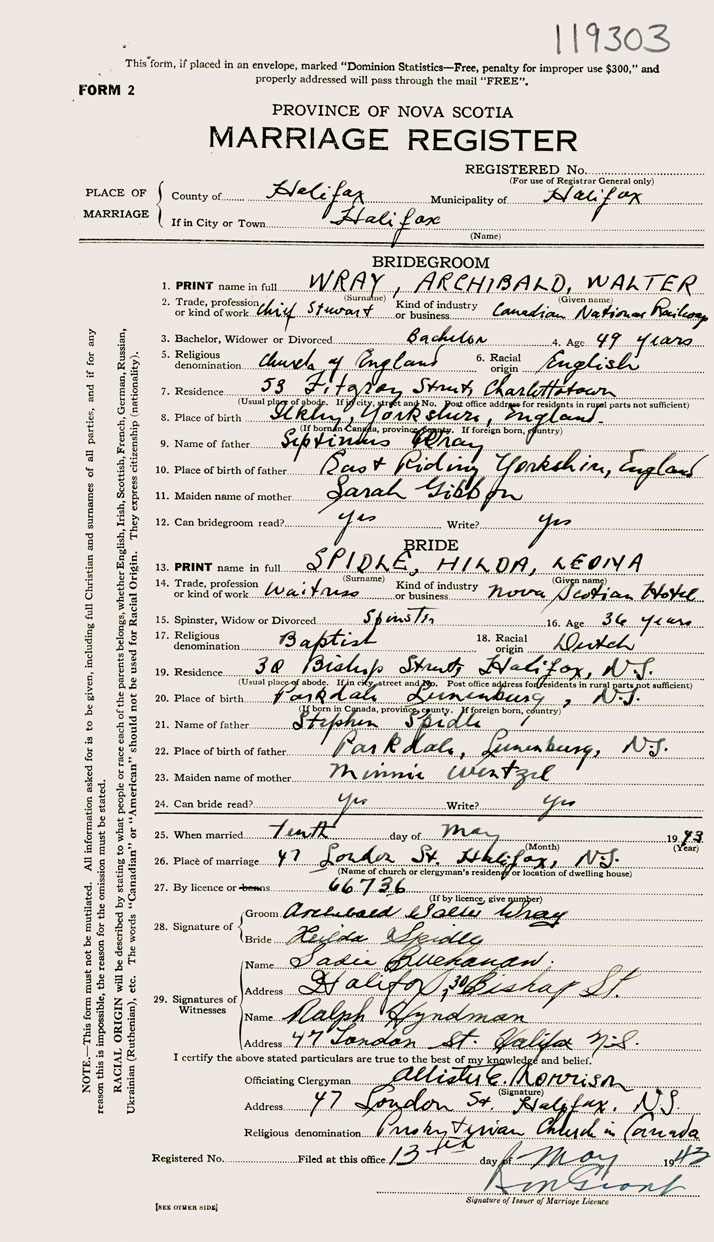 119303
This form, if placed in an envelope, marked "Dominion Statistics—Free, penalty for improper use $300," and
properly addressed will pass through the mail "FREE".
FORM 2
PROVINCE OF NOVA SCOTIA
MARRIAGE REGISTER
REGISTERED No.
(For use of Registrar General only)
PLACE OF MARRIAGE
County of Halifax Municipality of Halifax
If in City or Town Halifax
(Name)
BRIDEGROOM
1. PRINT name in full WRAY, ARCHIBALD, WALTER
(Surname) (Given name)
2. Trade, profession or kind of work Chief Stewart Kind of industry or business Canadian National Railway
3. Bachelor, Widower or Divorced Bachelor 4. Age 49 years
5. Religious denomination Church of England 6. Racial origin English
7. Residence 53 Fitzroy Street, Charlottetown
(Usual place of abode. If in city, street and No. Post office address for residents in rural parts not sufficient)
8. Place of birth Ilkley, Yorkshire, England.
(If born in Canada, province, county. If foreign born, country)
9. Name of father Septimus Wray
10. Place of birth of father East Riding Yorkshire, England
11. Maiden name of mother Sarah Gibbon
12. Can bridegroom read? yes Write? yes
BRIDE
13. PRINT name in full SPIDLE, HILDA, LEONA
(Surname) (Given name)
14. Trade, profession or kind of work Waitress Kind of industry or business Nova Scotian Hotel
15. Spinster, Widow or Divorced Spinster 16. Age 36 years
17. Religious denomination Baptist 18. Racial origin Dutch
19. Residence 30 Bishop Street, Halifax, N.S.
(Usual place of abode. If in city, street and No. Post office address for residents in rural parts not sufficient)
20. Place of birth Parkdale Lunenburg, N.S.
(If born in Canada, province, county. If foreign born, country)
21. Name of father Stephen Spidle
22. Place of birth of father Parkdale, Lunenburg, N.S.
23. Maiden name of mother Minnie Wentzel
24. Can bride read? yes Write? yes
25. When married Tenth day of May 1943
(Month) (Year)
26. Place of marriage 47 London St. Halifax, N.S.
(Name of church or clergyman's residence or location of dwelling house)
27. By licence or banns 66736
(If by licence, give number)
28. Signature of
Groom Archibald Walter Wray
Bride Hilda Spidle
29. Signatures of Witnesses
Name Sadie Buchanan.
Address Halifax, 30 Bishop St.
Name Ralph Hyndman
Address 47 London St. Halifax N.S.
I certify the above stated particulars are true to the best of my knowledge and belief.
Officiating Clergyman Allister C. Morrison
(Signature)
Address 47 London St. Halifax, N.S.
Religious denomination Presbyterian Church in Canada
Registered No. Filed at this office 13th day of May 1943
Signature of Issuer of Marriage Licence
[SEE OTHER SIDE]
NOTE.—This form must not be mutilated. All information asked for is to be given, including full Christian and surnames of all parties, and if for any
reason this is impossible, the reason for the omission must be stated.
RACIAL ORIGIN will be described by stating to what people or race each of the parents belongs, whether English, Irish, Scottish, French, German, Russian,
Ukrainian (Ruthenian), etc. The words "Canadian" or "American" should not be used for Racial Origin. They express citizenship (nationality).